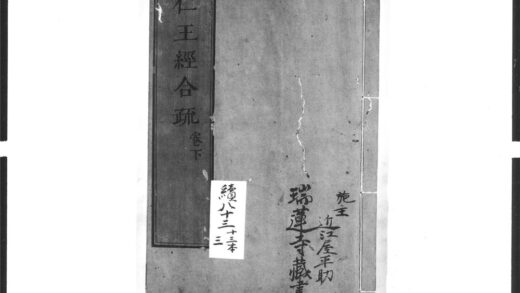 施主
近江屋平助
瑞蓮寺藏書
仁王經合疏 卷下
續八十三
十三本
三